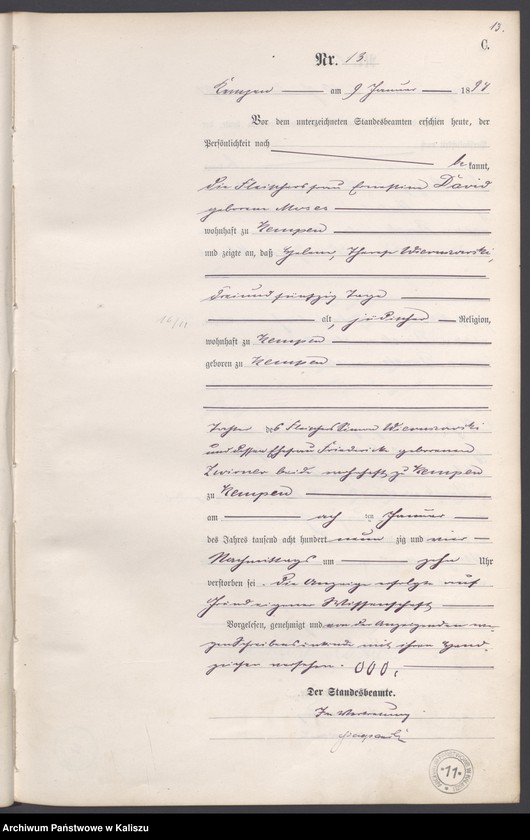 13.
C.
Nr. 13.
Kempen am 9 Januar 1894
Vor dem unterzeichneten Standesbeamten erschien heute, der
Persönlichkeit nach
bekannt,
die Fleischersfrau Ernestine David
geborene Moses
wohnhaft zu Kempen
und zeigte an, daß
drei und fünfzig Tage
alt, jüdischer Religion,
wohnhaft zu Kempen
geboren zu Kempen
Tochter des Fleischers
und dessen Ehefrau Friedericke geborenen
beide wohnhaft zu Kempen
zu Kempen
am acht ten Januar
des Jahres tausend acht hundert neun zig und vier
Nachmittags um zehn Uhr
verstorben sei. Die Anzeige erfolgte auf
Grund eigener Wissenschaft
Vorgelesen, genehmigt und von der Anzeigenden we-
gen Schreibensunkunde mit ihrem Hand-
zeichen versehen. 000.
Der Standesbeamte.
In Vertretung
11
Archiwum Państwowe w Kaliszu